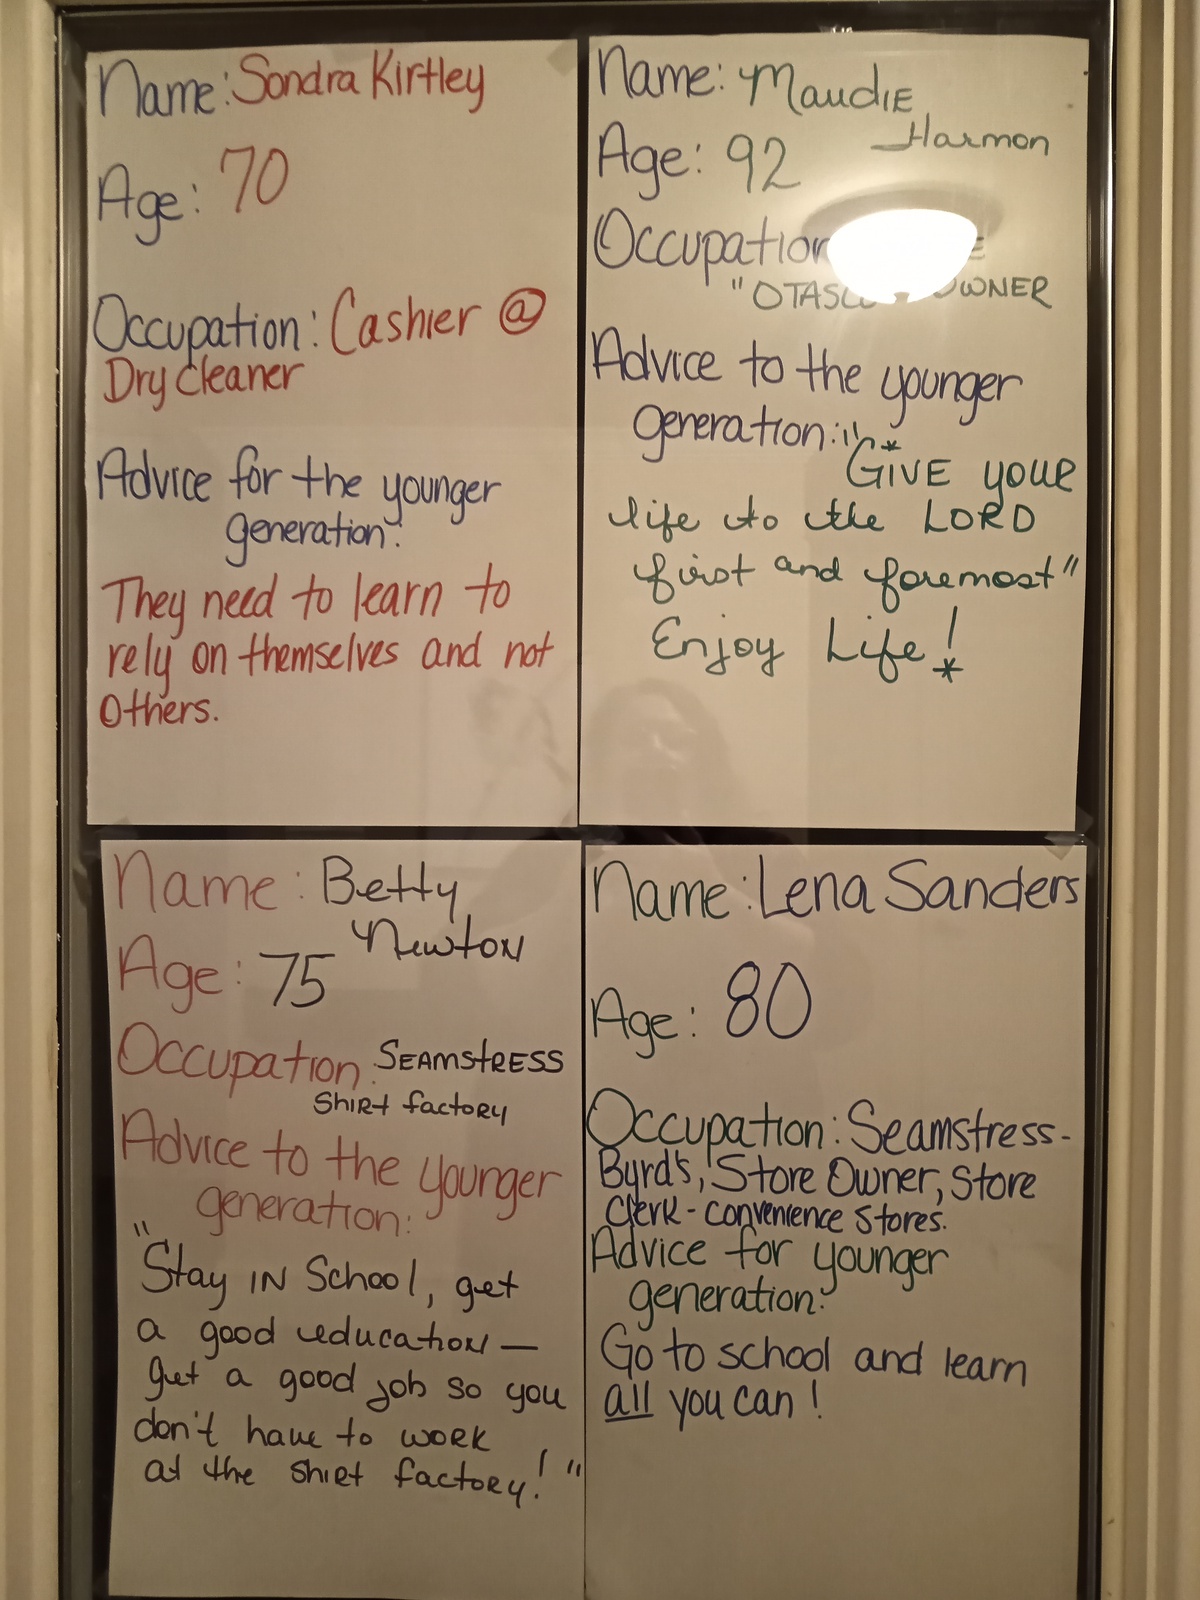 Name: Sondra Kirtley
Age: 70
Occupation: Cashier @
Dry cleaner
Advice for the younger
generation:
They need to learn to
rely on themselves and not
others.
Name: Maudie
Harmon
Age: 92
Occupation
"OTASCO OWNER
Advice to the younger
generation: "*
GIVE your
life to the LORD
first and foremost"
Enjoy Life! *
Name: Betty
Newton
Age: 75
Occupation: SEAMSTRESS
Shirt factory
Advice to the younger
generation:
"Stay IN School, get
a good education —
get a good job so you
don't have to work
at the shirt factory!"
Name: Lena Sanders
Age: 80
Occupation: Seamstress-
Byrd's, Store Owner, Store
Clerk - convenience stores.
Advice for younger
generation:
Go to school and learn
all you can!